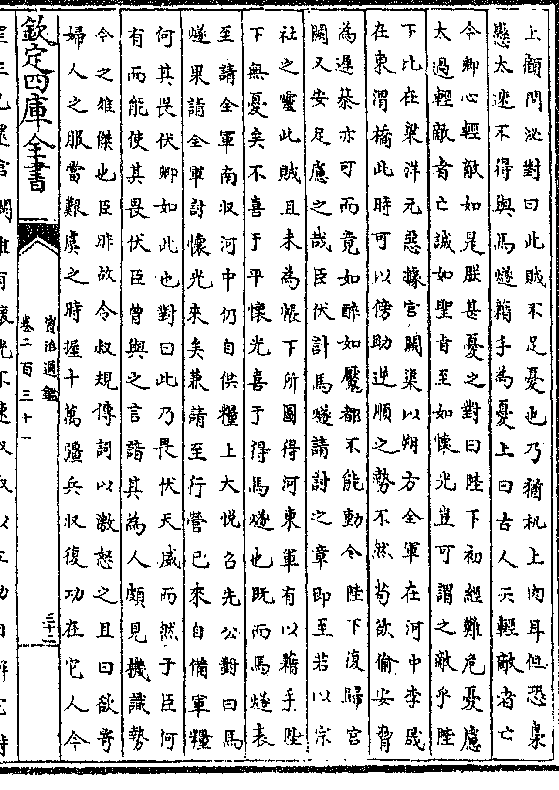 上顧問泌對曰此賊不足憂也乃猶机上肉耳但恐梟
懸太速不得與馬燧藉手為憂上曰古人云輕敵者亡
今卿心輕敵如是朕甚憂之對曰陛下初經難危憂慮
太過輕敵者亡誠如聖旨至如懷光豈可謂之敵乎陛
下比在梁洋元惡據宫闕渠以朔方全軍在河中李晟
在東渭橋此時可以傍助逆順之勢不然苟欲偷安脅
為遲暮亦可而竟如醉如魘都不能動今陛下復歸宫
闕又安足慮之哉臣伏計馬燧請討之章即至若以宗
社之靈此賊且未為帳下所圖得河東軍有以藉手陛
下無憂矣不喜于平懷光喜于得馬燧也既而馬燧表
至請全軍南収河中仍自供糧上大悦召先公對曰馬
燧果請全軍討懷光來矣兼請至行營已來自備軍糧
何其畏伏卿如此也對曰此乃畏伏天威而然于臣何
有而能使其畏伏臣曾與之言諳其為人頗見機識勢
今之雄傑也臣昨故令叔規傳詞以激怒之且曰欲寄
婦人之服當艱虞之時握十萬彊兵収復功在它人今
欽定四庫全書
資治通鑑
卷二百三十一
三十二